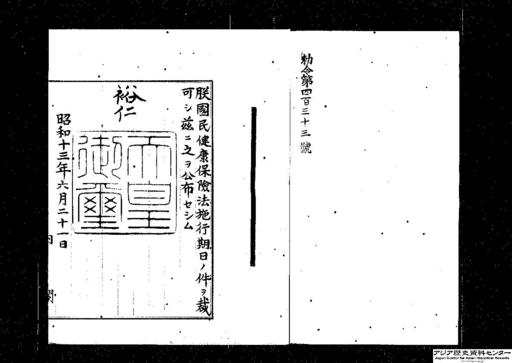 勅令第四百三十三號
朕國民健康保險法施行期日ノ件ヲ裁
可シ茲ニ之ヲ公布セシム
裕仁
天皇
御璽
昭和十三年六月二十一日
内
閣
アジア歴史資料センター
Japan Center for Asian Historical Records